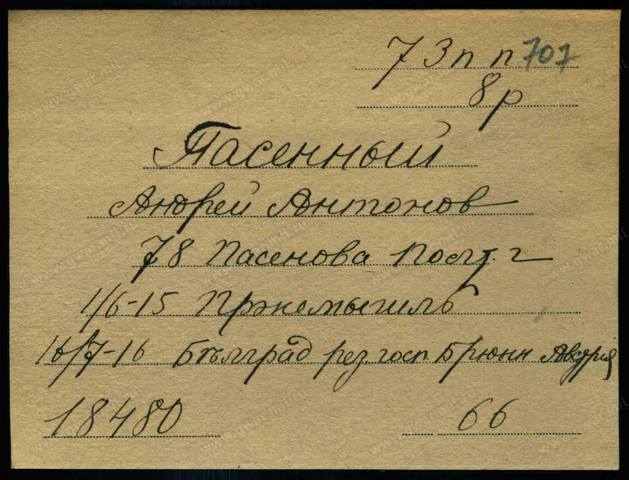 73 п п 707
8 р
Пасенный
Андрей Антонов
78 Пасенова Полт. г
1/6-15 Пржемышль
16/7-16 Бѣлград рез. госп Брюнн Австрія
18480 66